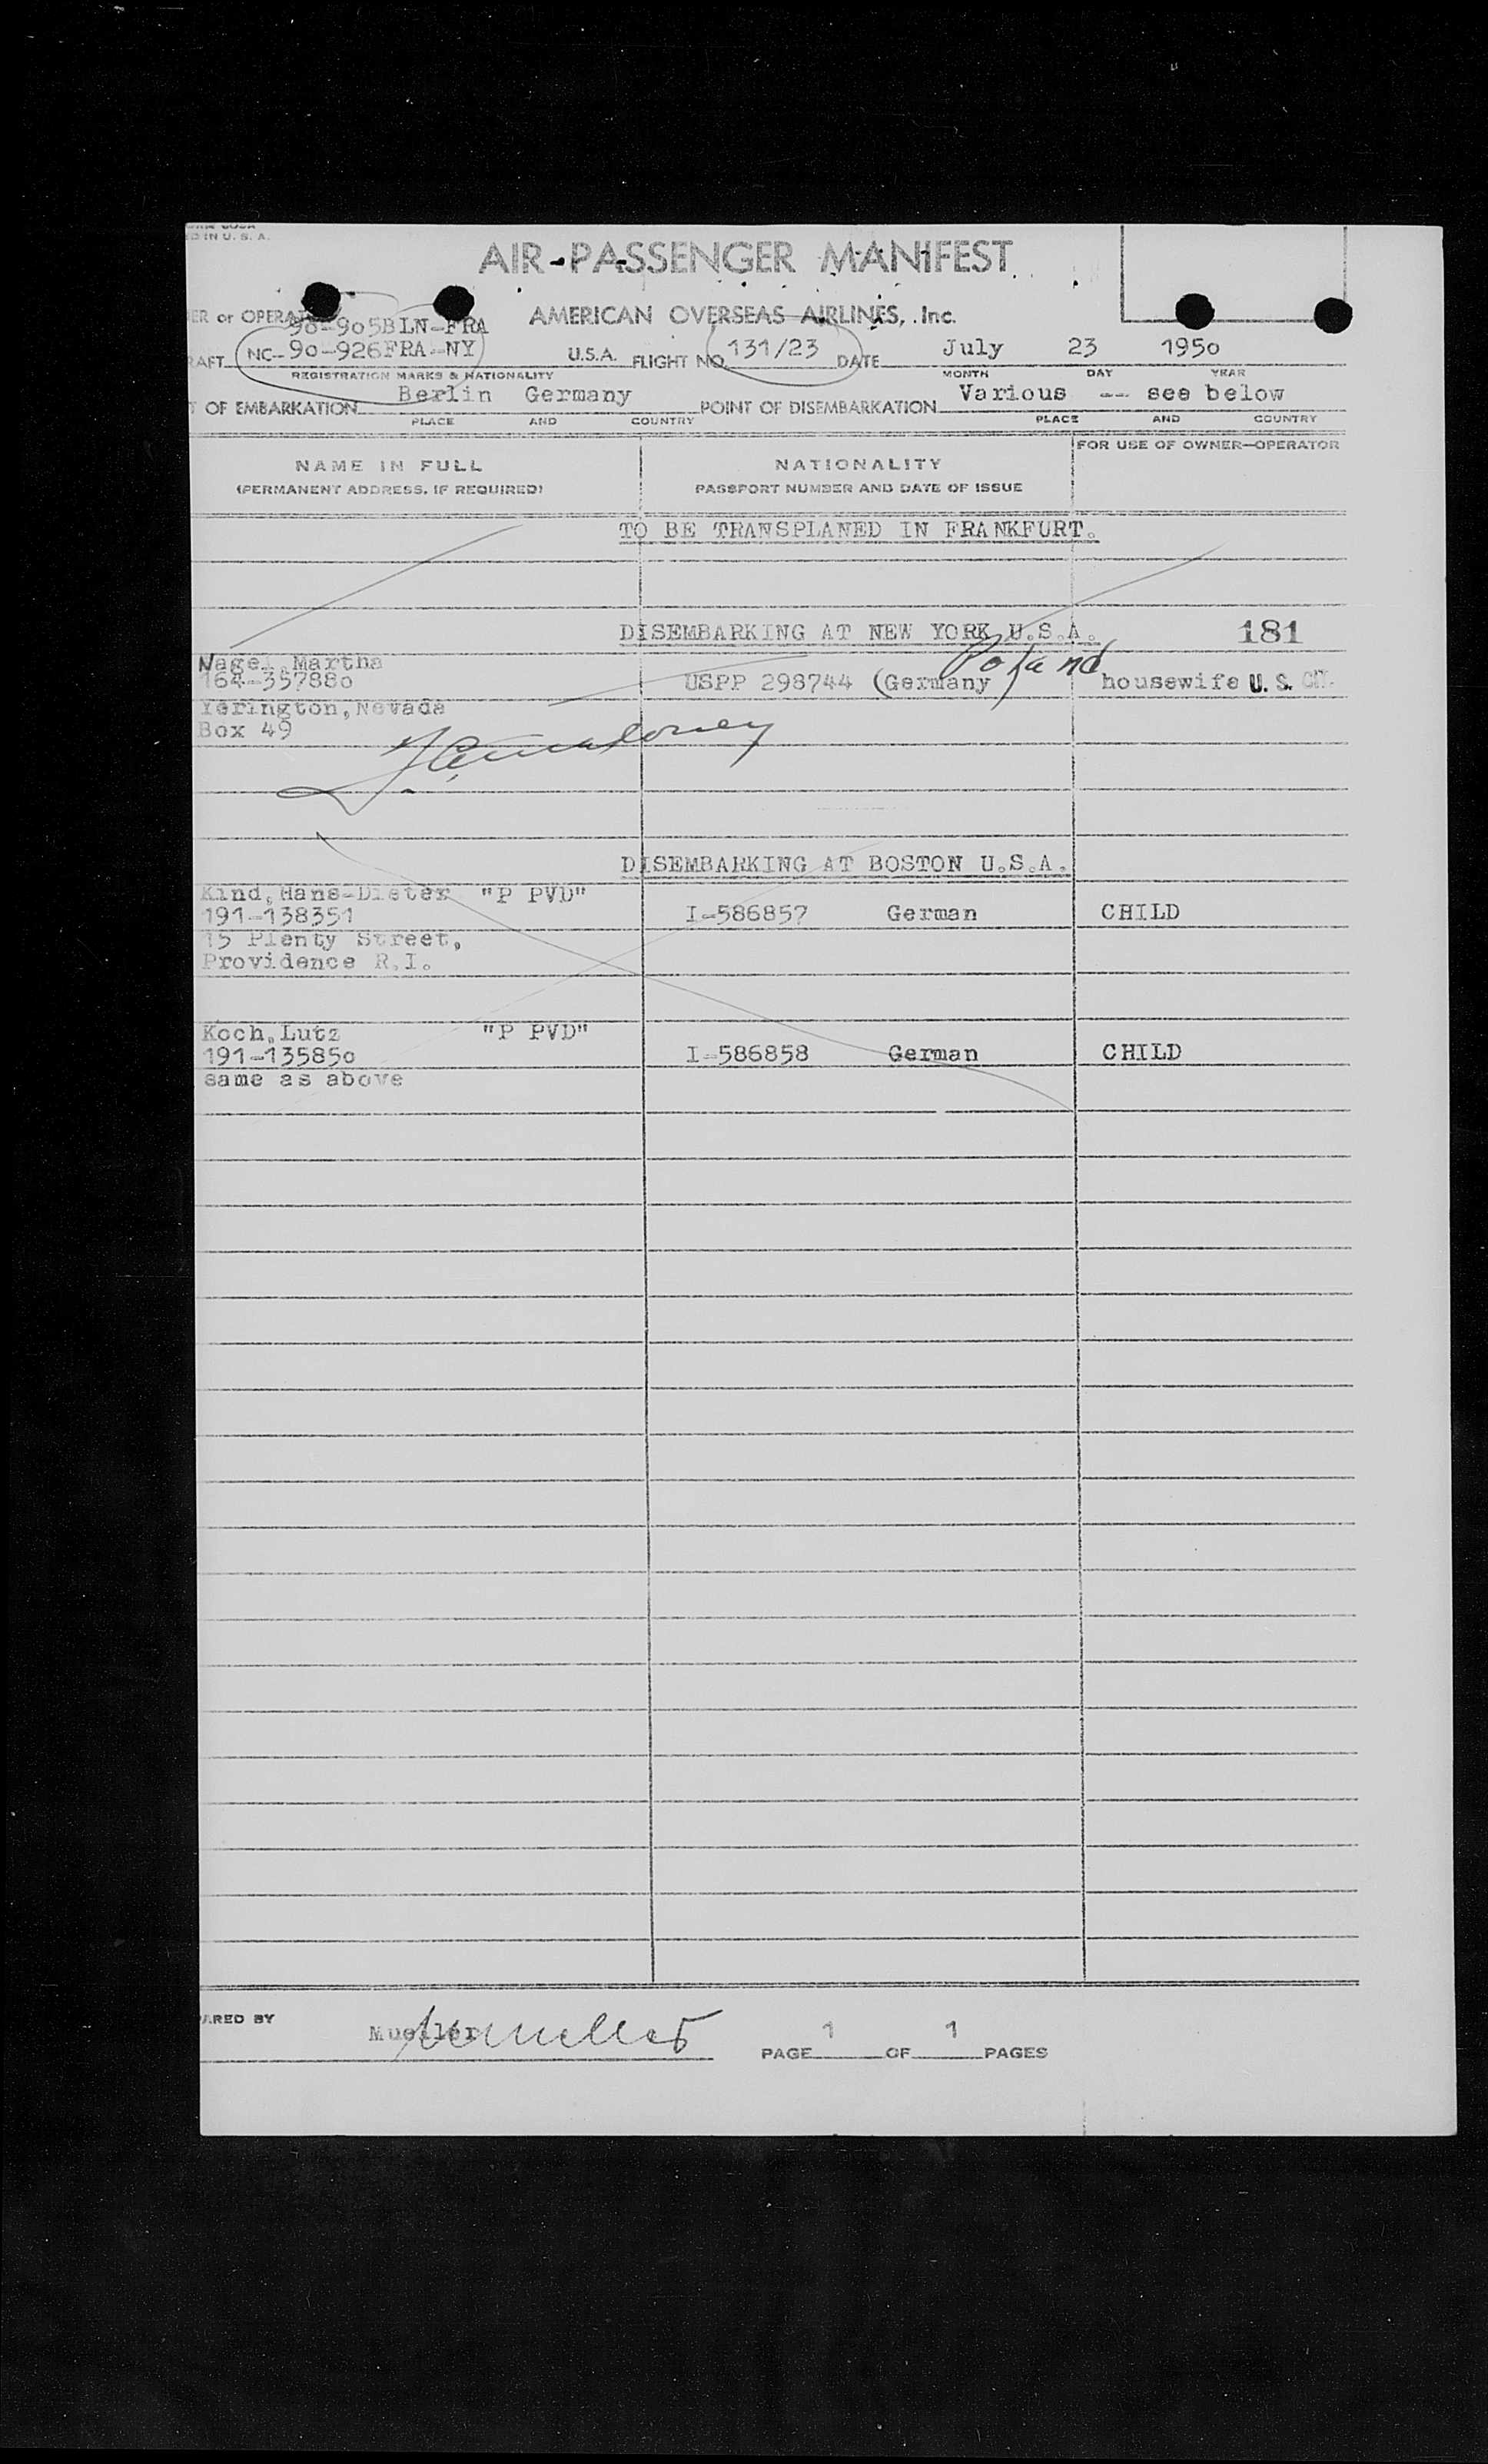 D IN U. S. A.
AIR-PASSENGER MANIFEST
ER or OPERAT
AMERICAN OVERSEAS AIRLINES, Inc.
90-905BLN-FRA
RAFT NC-90-926FRA-NY U.S.A. FLIGHT NO. 131/23 DATE July 23 1950
REGISTRATION MARKS & NATIONALITY MONTH DAY YEAR
T OF EMBARKATION Berlin Germany POINT OF DISEMBARKATION Various -- see below
PLACE AND COUNTRY PLACE AND COUNTRY
NAME IN FULL
(PERMANENT ADDRESS, IF REQUIRED)
NATIONALITY
PASSPORT NUMBER AND DATE OF ISSUE
FOR USE OF OWNER—OPERATOR
TO BE TRANSPLANED IN FRANKFURT.
DISEMBARKING AT NEW YORK U.S.A. 181
Nagel, Martha Poland
164-357880 USPP 298744 (Germany) housewife U. S. CIT.
Yerington, Nevada
Box 49
DISEMBARKING AT BOSTON U.S.A.
Kind, Hans-Dieter "P PVD"
191-138351 I-586857 German CHILD
15 Plenty Street,
Providence R.I.
Koch, Lutz "P PVD"
191-135850 I-586858 German CHILD
same as above
ARED BY Mueller
PAGE 1 OF 1 PAGES